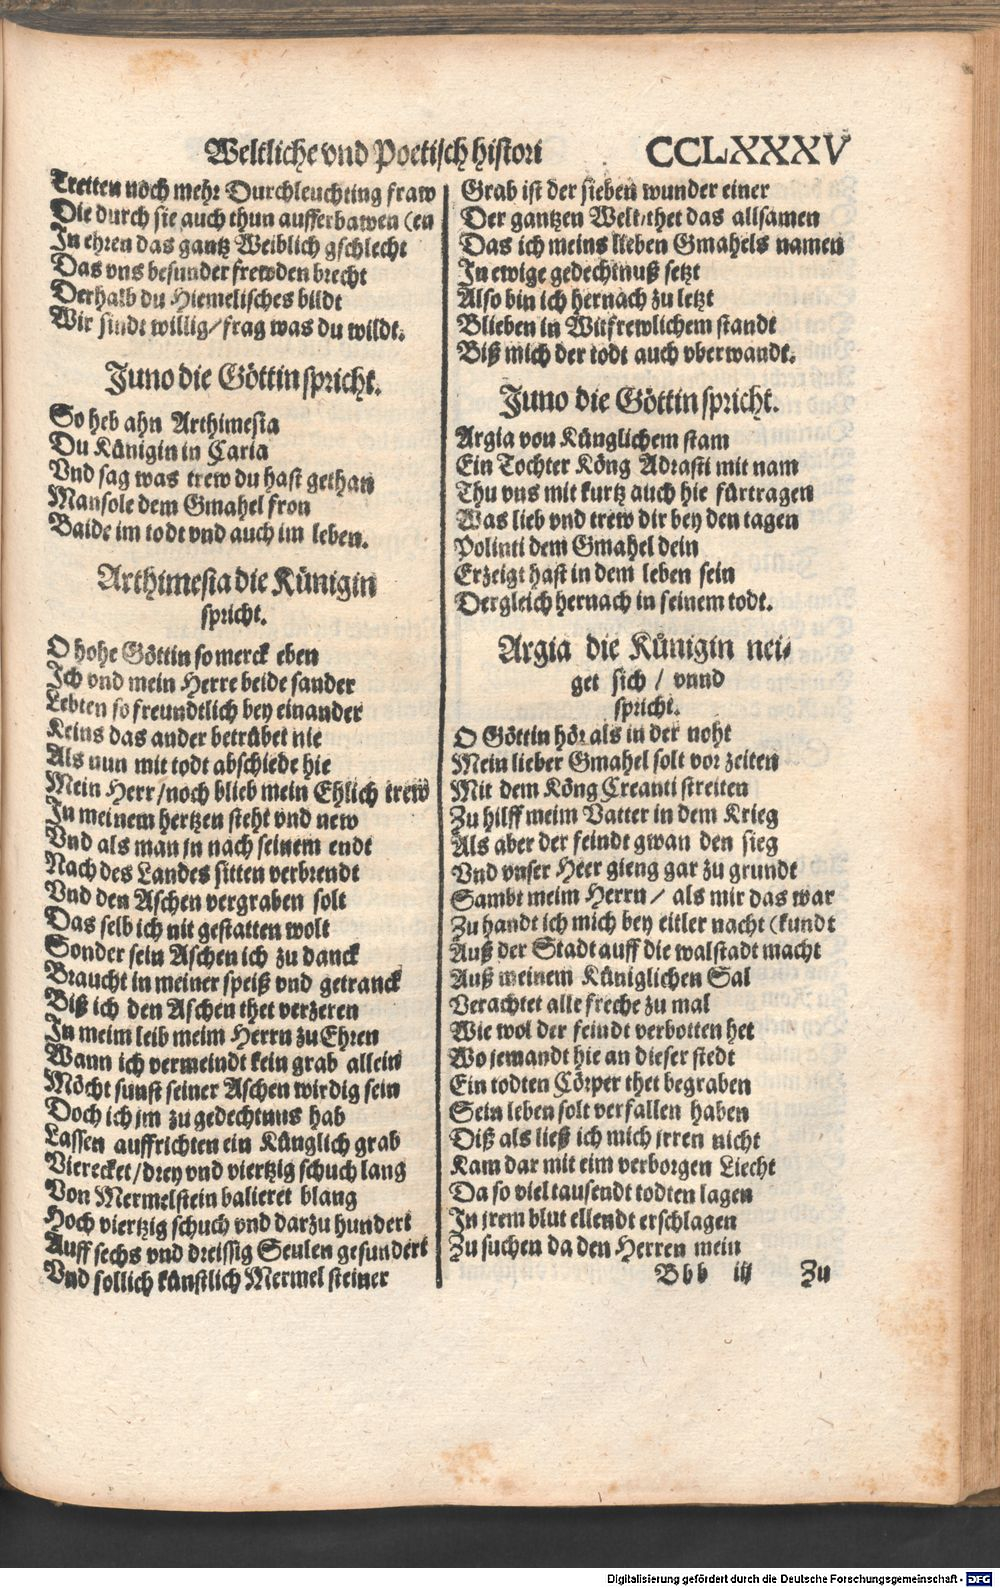 Weltliche vnd Poetisch histori CCLXXXV
Tretten noch mehr Durchleuchting fraw
Die durch sie auch thun aufferbawen (en
In ehren das gantz Weiblich gschlecht
Das vns besunder frewden brecht
Derhalb du Hiemelisches bildt
Wir sindt willig/ frag was du wildt.
Juno die Göttin spricht.
So heb ahn Arthimesia
Du Künigin in Caria
Vnd sag was trew du hast gethan
Mansole dem Gmahel fron
Baide im todt vnd auch im leben.
Arthimesia die Künigin
spricht.
O hohe Göttin so merck eben
Ich vnd mein Herre beide sander
Lebten so freundtlich bey einander
Keins das ander betrübet nie
Als nun mit todt abschiede hie
Mein Herr/ noch blieb mein Ehlich trew
In meinem hertzen steht vnd new
Vnd als man jn nach seinem endt
Nach des Landes sitten verbrendt
Vnd den Aschen vergraben solt
Das selb ich nit gestatten wolt
Sonder sein Aschen ich zu danck
Braucht in meiner speiß vnd getranck
Biß ich den Aschen thet verzeren
In meim leib meim Herrn zu Ehren
Wann ich vermeindt kein grab allein
Möcht sunst seiner Aschen wirdig sein
Doch ich jm zu gedechtnus hab
Lassen auffrichten ein Künglich grab
Vierecket/ drey vnd viertzig schuch lang
Von Mermelstein balieret blang
Hoch viertzig schuch vnd darzu hundert
Auff sechs vnd dreissig Seulen gesundert
Vnd sollich künstlich Mermel steiner
Grab ist der sieben wunder einer
Der gantzen Welt/thet das allsamen
Das ich meins lieben Gmahels namen
In ewige gedechtnuß setzt
Also bin ich hernach zu letzt
Blieben in Witfrewlichem standt
Biß mich der todt auch vberwandt.
Juno die Göttin spricht.
Argia von Künglichem stam
Ein Tochter Köng Adrasti mit nam
Thu vns mit kurtz auch hie fürtragen
Was lieb vnd trew dir bey den tagen
Polinti dem Gmahel dein
Erzeigt hast in dem leben sein
Dergleich hernach in seinem todt.
Argia die Künigin nei-
get sich / vnnd
spricht.
O Göttin hör als in der noht
Mein lieber Gmahel solt vor zeiten
Mit dem Köng Creanti streiten
Zu hilff meim Vatter in dem Krieg
Als aber der feindt gwan den sieg
Vnd vnser Heer gieng gar zu grundt
Sambt meim Herrn / als mir das war
Zu handt ich mich bey eitler nacht (kundt
Auß der Stadt auff die walstadt macht
Auß meinem Küniglichen Sal
Verachtet alle freche zu mal
Wie wol der feindt verbotten het
Wo jemandt hie an dieser stedt
Ein todten Cörper thet begraben
Sein leben solt verfallen haben
Diß als ließ ich mich jrren nicht
Kam dar mit eim verborgen Liecht
Da so viel tausendt todten lagen
In jrem blut ellendt erschlagen
Zu suchen da den Herren mein
Bbb iij Zu
Digitalisierung gefördert durch die Deutsche Forschungsgemeinschaft - DFG